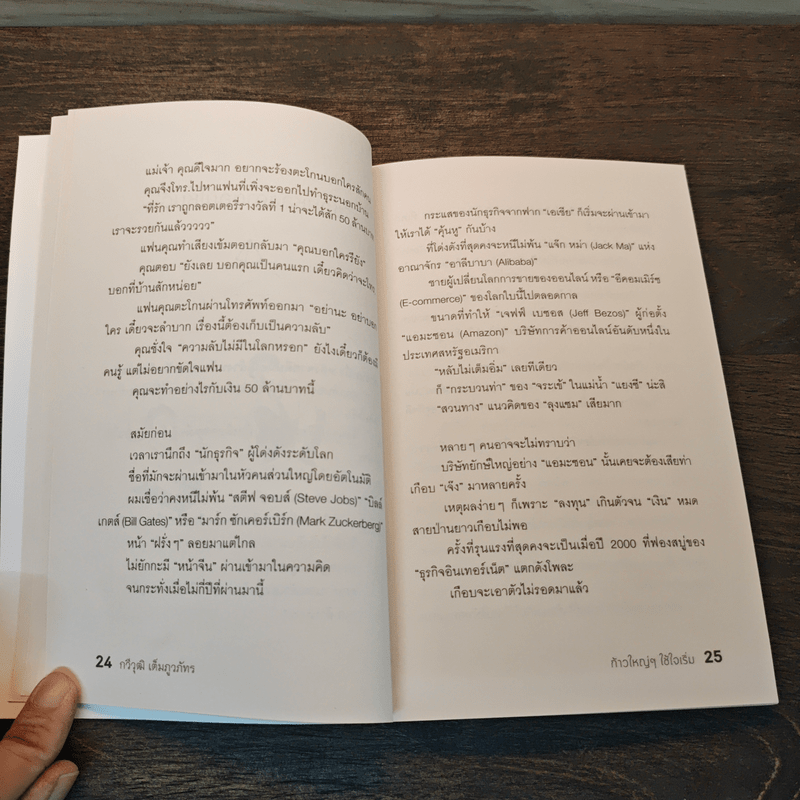 แม่เจ้า คุณดีใจมาก อยากจะร้องตะโกนบอกใครสักคน
คุณจึงโทร.ไปหาแฟนที่เพิ่งจะออกไปทำธุระนอกบ้าน
"ที่รัก เราถูกลอตเตอรี่รางวัลที่ 1 น่าจะได้สัก 50 ล้านบาท
เราจะรวยกันแล้ววววว"
แฟนคุณทำเสียงเข้มตอบกลับมา "คุณบอกใครรึยัง"
คุณตอบ "ยังเลย บอกคุณเป็นคนแรก เดี๋ยวคิดว่าจะโทร
บอกที่บ้านสักหน่อย"
แฟนคุณตะโกนผ่านโทรศัพท์ออกมา "อย่านะ อย่าบอก
ใคร เดี๋ยวจะลำบาก เรื่องนี้ต้องเก็บเป็นความลับ"
คุณชั่งใจ "ความลับไม่มีในโลกหรอก" ยังไงเดี๋ยวก็ต้องมี
คนรู้ แต่ไม่อยากขัดใจแฟน
คุณจะทำอย่างไรกับเงิน 50 ล้านบาทนี้
สมัยก่อน
เวลาเรานึกถึง "นักธุรกิจ" ผู้โด่งดังระดับโลก
ชื่อที่มักจะผ่านเข้ามาในหัวคนส่วนใหญ่โดยอัตโนมัติ
ผมเชื่อว่าคงหนีไม่พ้น "สตีฟ จอบส์ (Steve Jobs)" "บิลล์
เกตส์ (Bill Gates)" หรือ "มาร์ก ซักเคอร์เบิร์ก (Mark Zuckerberg)"
หน้า "ฝรั่งๆ" ลอยมาแต่ไกล
ไม่ยักกะมี "หน้าจีน" ผ่านเข้ามาในความคิด
จนกระทั่งเมื่อไม่กี่ปีที่ผ่านมานี้
24 กวีวุฒิ เต็มภูวภัทร
กระแสของนักธุรกิจจากฟาก "เอเชีย" ก็เริ่มจะผ่านเข้ามา
ให้เราได้ "คุ้นหู" กันบ้าง
ที่โด่งดังที่สุดคงจะหนีไม่พ้น "แจ็ก หม่า (Jack Ma)" แห่ง
อาณาจักร "อาลีบาบา (Alibaba)"
ชายผู้เปลี่ยนโลกการขายของออนไลน์ หรือ "อีคอมเมิร์ซ
(E-commerce)" ของโลกใบนี้ไปตลอดกาล
ขนาดที่ทำให้ "เจฟฟ์ เบซอส (Jeff Bezos)" ผู้ก่อตั้ง
"แอมะซอน (Amazon)" บริษัทการค้าออนไลน์อันดับหนึ่งใน
ประเทศสหรัฐอเมริกา
"หลับไม่เต็มอิ่ม" เลยทีเดียว
ก็ "กระบวนท่า" ของ "จระเข้" ในแม่น้ำ "แยงซี" น่ะสิ
"สวนทาง" แนวคิดของ "ลุงแซม" เสียมาก
หลายๆ คนอาจจะไม่ทราบว่า
บริษัทยักษ์ใหญ่อย่าง "แอมะซอน" นั้นเคยจะต้องเสียท่า
เกือบ "เจ๊ง" มาหลายครั้ง
เหตุผลง่ายๆ ก็เพราะ "ลงทุน" เกินตัวจน "เงิน" หมด
สายป่านยาวเกือบไม่พอ
ครั้งที่รุนแรงที่สุดคงจะเป็นเมื่อปี 2000 ที่ฟองสบู่ของ
"ธุรกิจอินเทอร์เน็ต" แตกดังโพละ
เกือบจะเอาตัวไม่รอดมาแล้ว
ก้าวใหญ่ๆ ใช้ใจเริ่ม 25